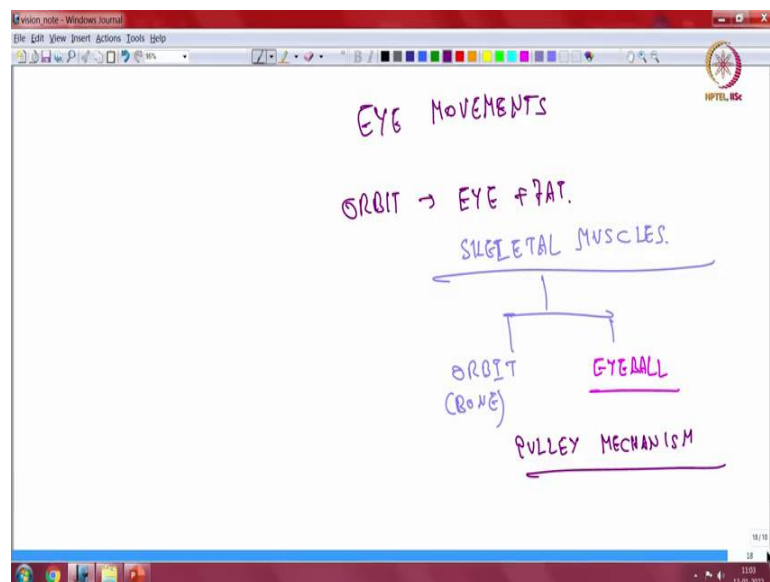 vision_note - Windows Journal
File Edit View Insert Actions Tools Help
96%
B I
NPTEL, IISc
EYE MOVEMENTS
ORBIT → EYE + FAT.
SKELETAL MUSCLES.
ORBIT EYEBALL
(BONE)
PULLEY MECHANISM
18/18
18
11:03